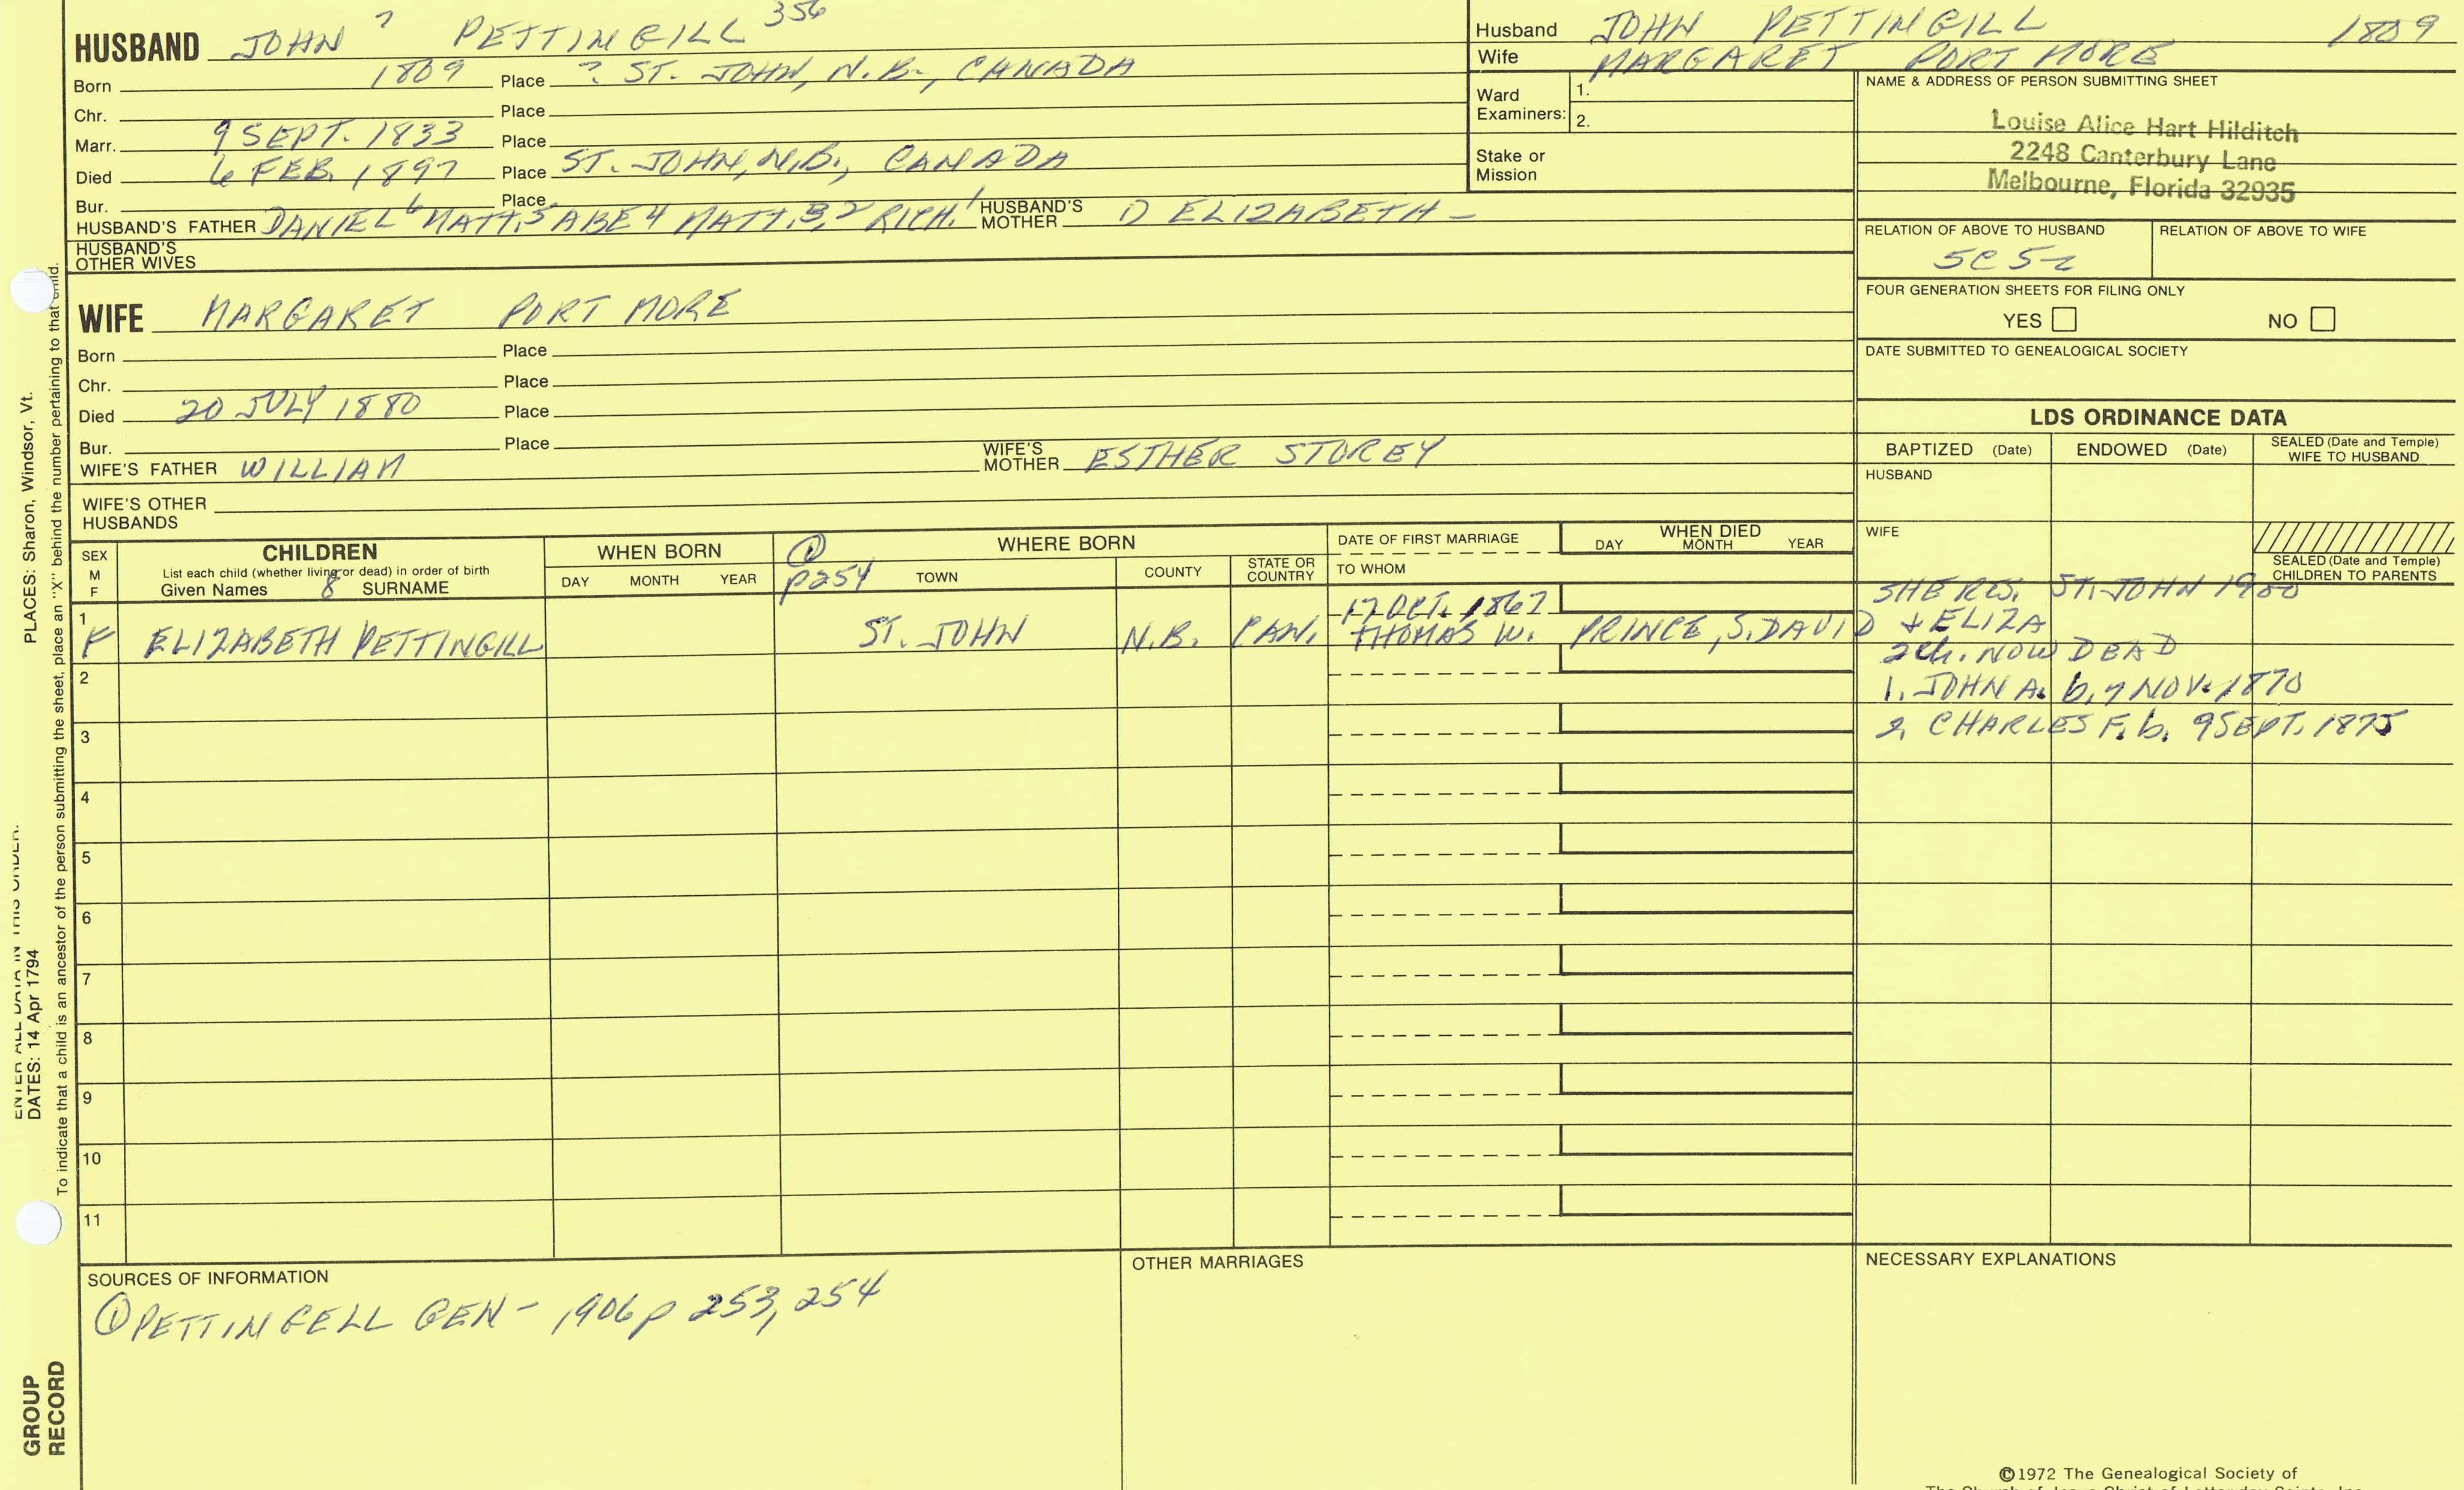 HUSBAND JOHN 7 PETTINGILL 356
Born 1809 Place ? ST. JOHN, N.B., CANADA
Chr. Place
Marr. 9 SEPT. 1833 Place
Died 6 FEB. 1897 Place ST. JOHN, N.B., CANADA
Bur. Place
HUSBAND'S FATHER DANIEL 6 MATT. 5 ABE 4 MATT. 3, 2 RICH. 1 HUSBAND'S MOTHER D ELIZABETH –
HUSBAND'S OTHER WIVES
Husband JOHN PETTINGILL 1809
Wife MARGARET PORT MORE
Ward Examiners: 1.
2.
Stake or Mission
NAME & ADDRESS OF PERSON SUBMITTING SHEET
Louise Alice Hart Hilditch
2248 Canterbury Lane
Melbourne, Florida 32935
RELATION OF ABOVE TO HUSBAND RELATION OF ABOVE TO WIFE
FOUR GENERATION SHEETS FOR FILING ONLY
YES NO
DATE SUBMITTED TO GENEALOGICAL SOCIETY
WIFE MARGARET PORT MORE
Born Place
Chr. Place
Died 20 JULY 1880 Place
Bur. Place
WIFE'S FATHER WILLIAM WIFE'S MOTHER ESTHER STOREY
WIFE'S OTHER HUSBANDS
LDS ORDINANCE DATA
BAPTIZED (Date) ENDOWED (Date) SEALED (Date and Temple) WIFE TO HUSBAND
HUSBAND
WIFE
SEALED (Date and Temple) CHILDREN TO PARENTS
SEX M F
CHILDREN
List each child (whether living or dead) in order of birth
Given Names 8 SURNAME
WHEN BORN
DAY MONTH YEAR
① p254
WHERE BORN
TOWN COUNTY STATE OR COUNTRY
DATE OF FIRST MARRIAGE
TO WHOM
WHEN DIED
DAY MONTH YEAR
1 F ELIZABETH PETTINGILL ST. JOHN N.B. CAN. 17 OCT. 1867
THOMAS W. PRINCE, S. DAVID + ELIZA
SHE RES. ST. JOHN 1900
2 ch. NOW DEAD
1. JOHN A. b. 7 NOV. 1870
2. CHARLES F. b. 9 SEPT. 1875
2
3
4
5
6
7
8
9
10
11
SOURCES OF INFORMATION
① PETTINGELL GEN – 1906 p 253, 254
OTHER MARRIAGES
NECESSARY EXPLANATIONS
©1972 The Genealogical Society of
PLACES: Sharon, Windsor, Vt.
ENTER ALL DATA IN THIS ORDER.
DATES: 14 Apr 1794
To indicate that a child is an ancestor of the person submitting the sheet, place an "X" behind the number pertaining to that child.
GROUP
RECORD